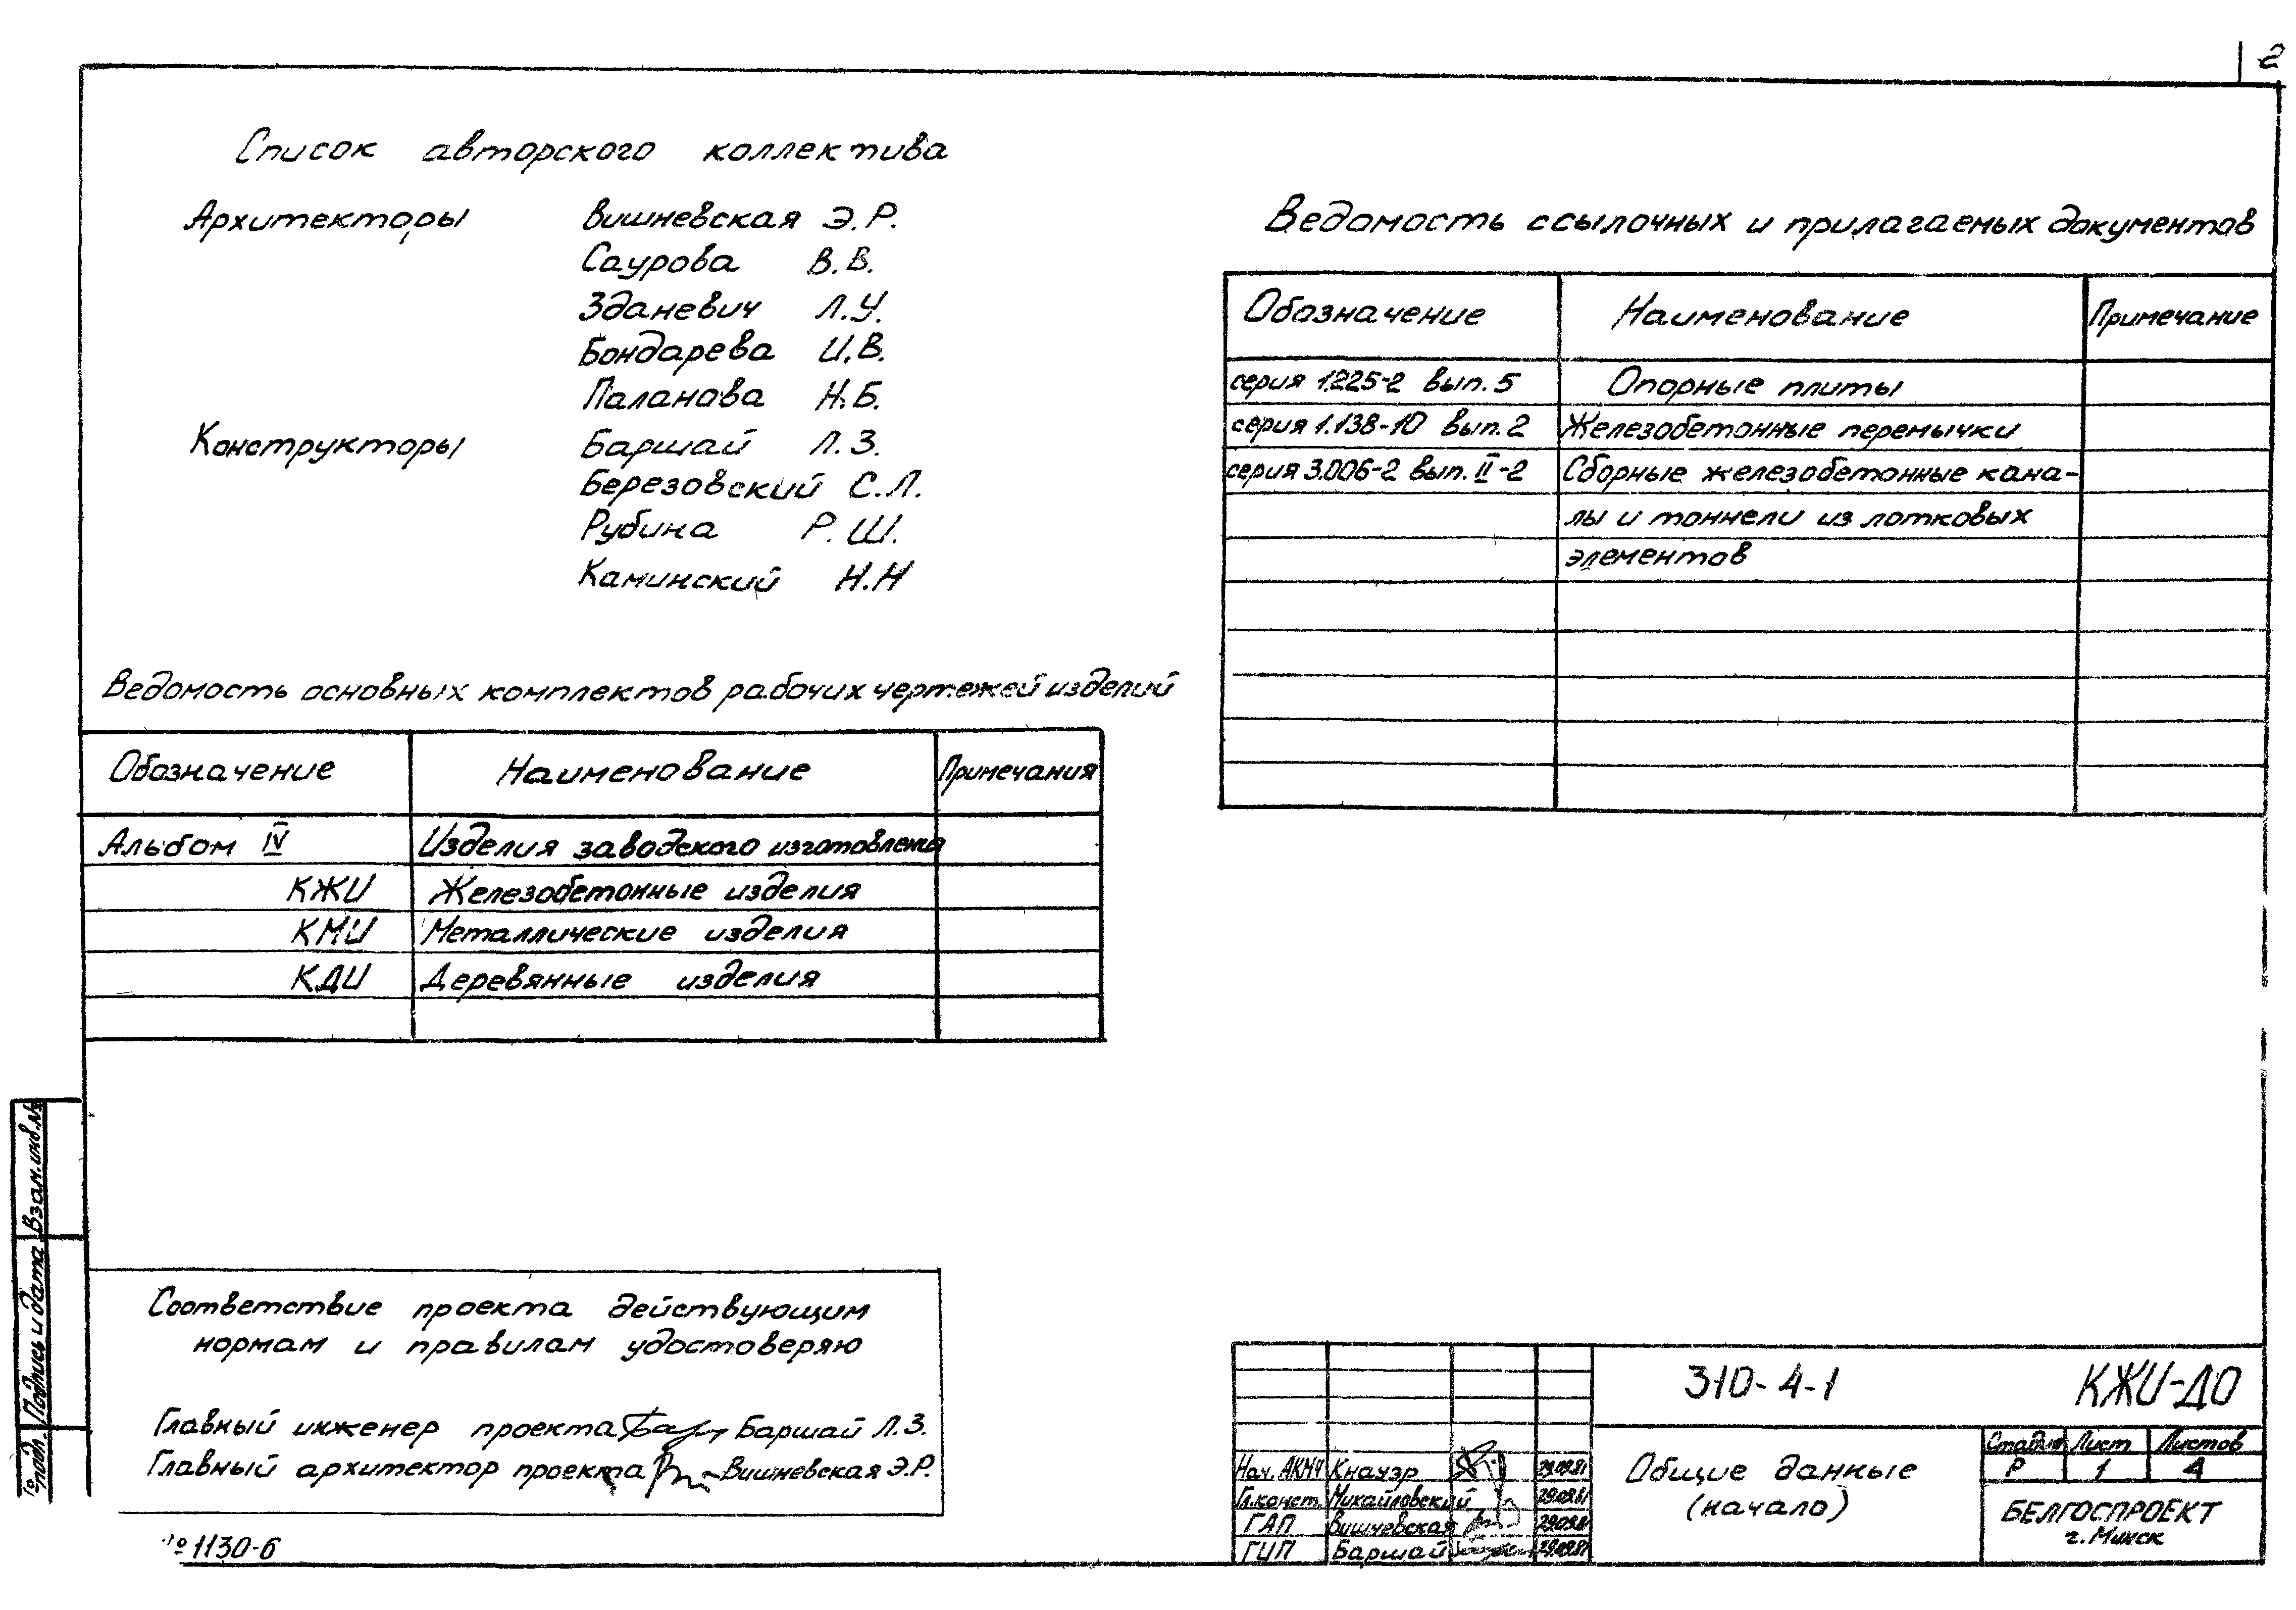 2
Список авторского коллектива
Архитекторы Вишневская Э.Р.
Саурова В.В.
Зданевич Л.У.
Бондарева И.В.
Паланова Н.Б.
Конструкторы Баршай Л.З.
Березовский С.Л.
Рубина Р.Ш.
Каминский Н.Н
Ведомость основных комплектов рабочих чертежей изделий
Обозначение Наименование Примечания
Альбом IV Изделия заводского изготовления
КЖИ Железобетонные изделия
КМИ Металлические изделия
КДИ Деревянные изделия
Ведомость ссылочных и прилагаемых документов
Обозначение Наименование Примечание
серия 1.225-2 вып. 5 Опорные плиты
серия 1.138-10 вып. 2 Железобетонные перемычки
серия 3.006-2 вып. II-2 Сборные железобетонные кана-
лы и тоннели из лотковых
элементов
Взам. инв. №
Подпись и дата
№ подл.
Соответствие проекта действующим
нормам и правилам удостоверяю
Главный инженер проекта Баршай Л.З.
Главный архитектор проекта Вишневская Э.Р.
№ 1130-6
310-4-1 КЖИ-ДО
Нач. АКМ4 Кнауэр 29.09.81
Гл.конст. Михайловский 29.09.81
ГАП Вишневская 29.09.81
ГИП Баршай 29.09.81
Общие данные
(начало)
Стадия Лист Листов
Р 1 4
БЕЛГОСПРОЕКТ
г. Минск